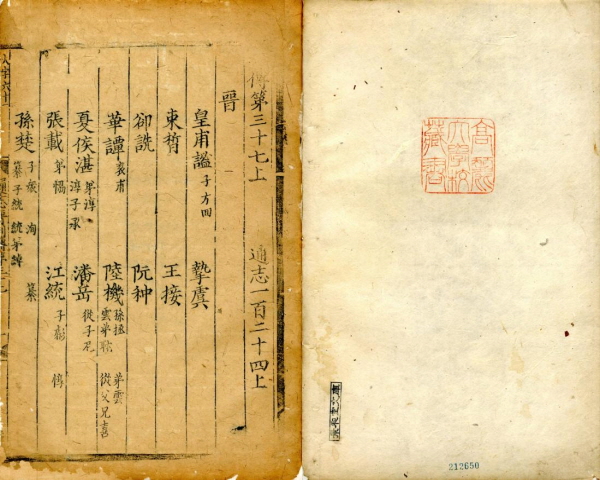 傳第三十七上 通志一百二十四上
晉
皇甫謐 子方回 摯虞
束皙 王接
郤詵 阮种
華譚 袁甫 陸機 孫拯 弟雲 雲弟耽 從父兄喜
夏侯湛 弟淳 淳子承 潘岳 從子尼
張載 弟協 江統 子彪 惇
孫楚 子衆 洵 纂 纂子統 統弟綽
高麗大學校藏書
212650